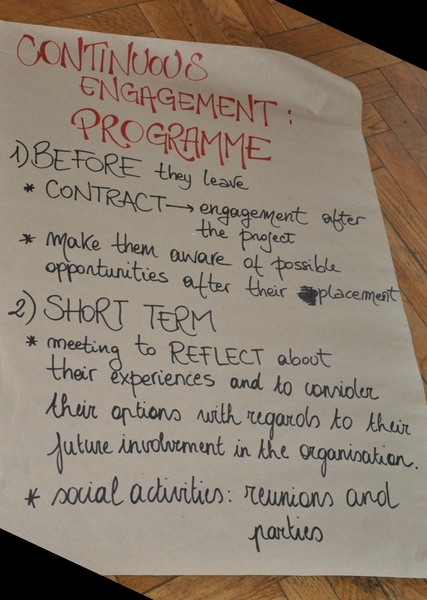 CONTINUOUS
ENGAGEMENT:
PROGRAMME
1) BEFORE they leave
* CONTRACT → engagement after
the project
* make them aware of possible
opportunities after their placement
2) SHORT TERM
* meeting to REFLECT about
their experiences and to consider
their options with regards to their
future involvment in the organisation.
* social activities: reunions and
parties